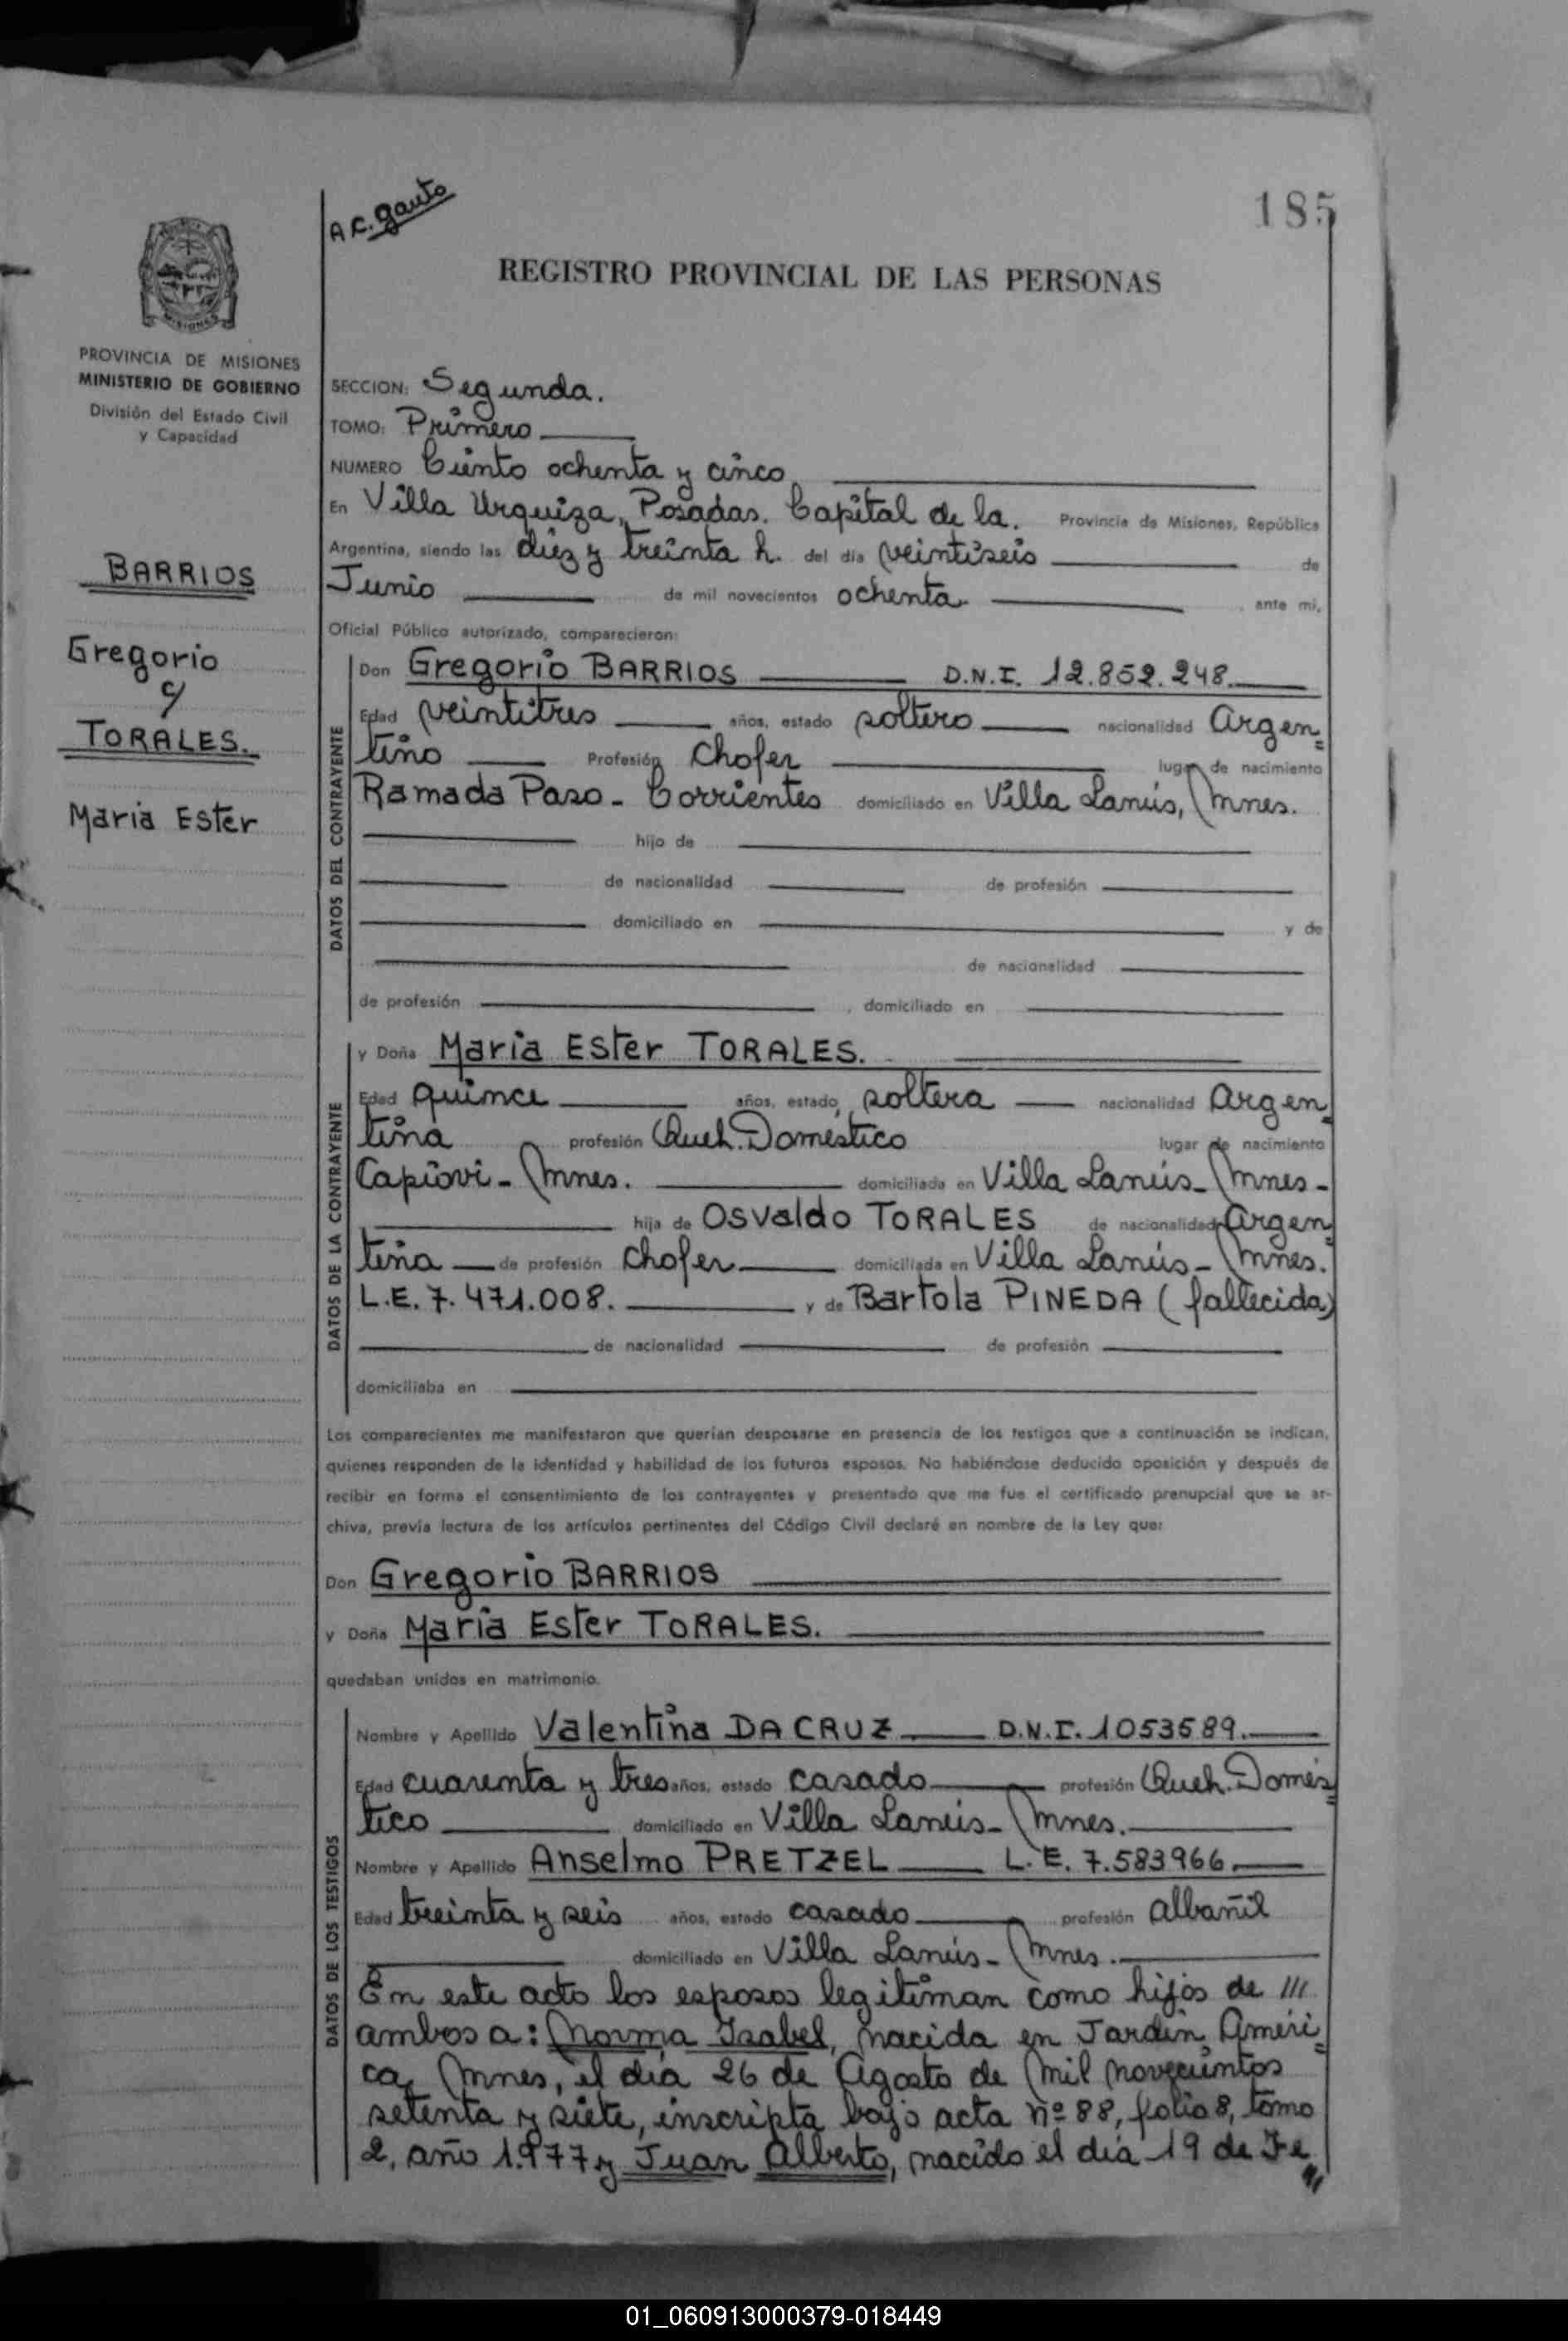 A.C. Gauto
185
REGISTRO PROVINCIAL DE LAS PERSONAS
MISIONES
PROVINCIA DE MISIONES
MINISTERIO DE GOBIERNO
División del Estado Civil
y Capacidad
BARRIOS
Gregorio
c/
TORALES.
Maria Ester
SECCION: Segunda.
TOMO: Primero
NUMERO Ciento ochenta y cinco
En Villa Urquiza, Posadas. Capital de la. Provincia de Misiones, República
Argentina, siendo las diez y treinta h. del día veintiseis de
Junio de mil novecientos ochenta ante mí,
Oficial Público autorizado, comparecieron:
DATOS DEL CONTRAYENTE
Don Gregorio BARRIOS D.N.I. 12.852.248.
Edad veintitres años, estado soltero nacionalidad Argen
tino Profesión Chofer lugar de nacimiento
Ramada Paso - Corrientes domiciliado en Villa Lanús, Mnes.
hijo de
de nacionalidad de profesión
domiciliado en y de
de nacionalidad
de profesión , domiciliado en
DATOS DE LA CONTRAYENTE
y Doña Maria Ester TORALES.
Edad quince años, estado soltera nacionalidad Argen
tina profesión Queh. Doméstico lugar de nacimiento
Capiovi - Mnes. domiciliada en Villa Lanús - Mnes -
hija de Osvaldo TORALES de nacionalidad Argen
tina de profesión Chofer domiciliada en Villa Lanús - Mnes.
L.E. 7.471.008. y de Bartola PINEDA (fallecida)
de nacionalidad de profesión
domiciliaba en
Los comparecientes me manifestaron que querían desposarse en presencia de los testigos que a continuación se indican,
quienes responden de la identidad y habilidad de los futuros esposos. No habiéndose deducido oposición y después de
recibir en forma el consentimiento de los contrayentes y presentado que me fue el certificado prenupcial que se ar-
chiva, previa lectura de los artículos pertinentes del Código Civil declaré en nombre de la Ley que:
Don Gregorio BARRIOS
y Doña Maria Ester TORALES.
quedaban unidos en matrimonio.
DATOS DE LOS TESTIGOS
Nombre y Apellido Valentina DA CRUZ D.N.I. 1053589.
Edad cuarenta y tres años, estado casado profesión Queh. Domés
tico domiciliado en Villa Lanús - Mnes.
Nombre y Apellido Anselmo PRETZEL L.E. 7.583966.
Edad treinta y seis años, estado casado profesión albañil
domiciliado en Villa Lanús - Mnes.
En este acto los esposos legitiman como hijos de ///
ambos a: Norma Isabel, nacida en Jardin Ameri
ca, Mnes, el día 26 de Agosto de mil novecientos
setenta y siete, inscripta bajo acta nº 88, folio 8, tomo
2, año 1.977 y Juan Alberto, nacido el día 19 de Fe
01_060913000379-018449